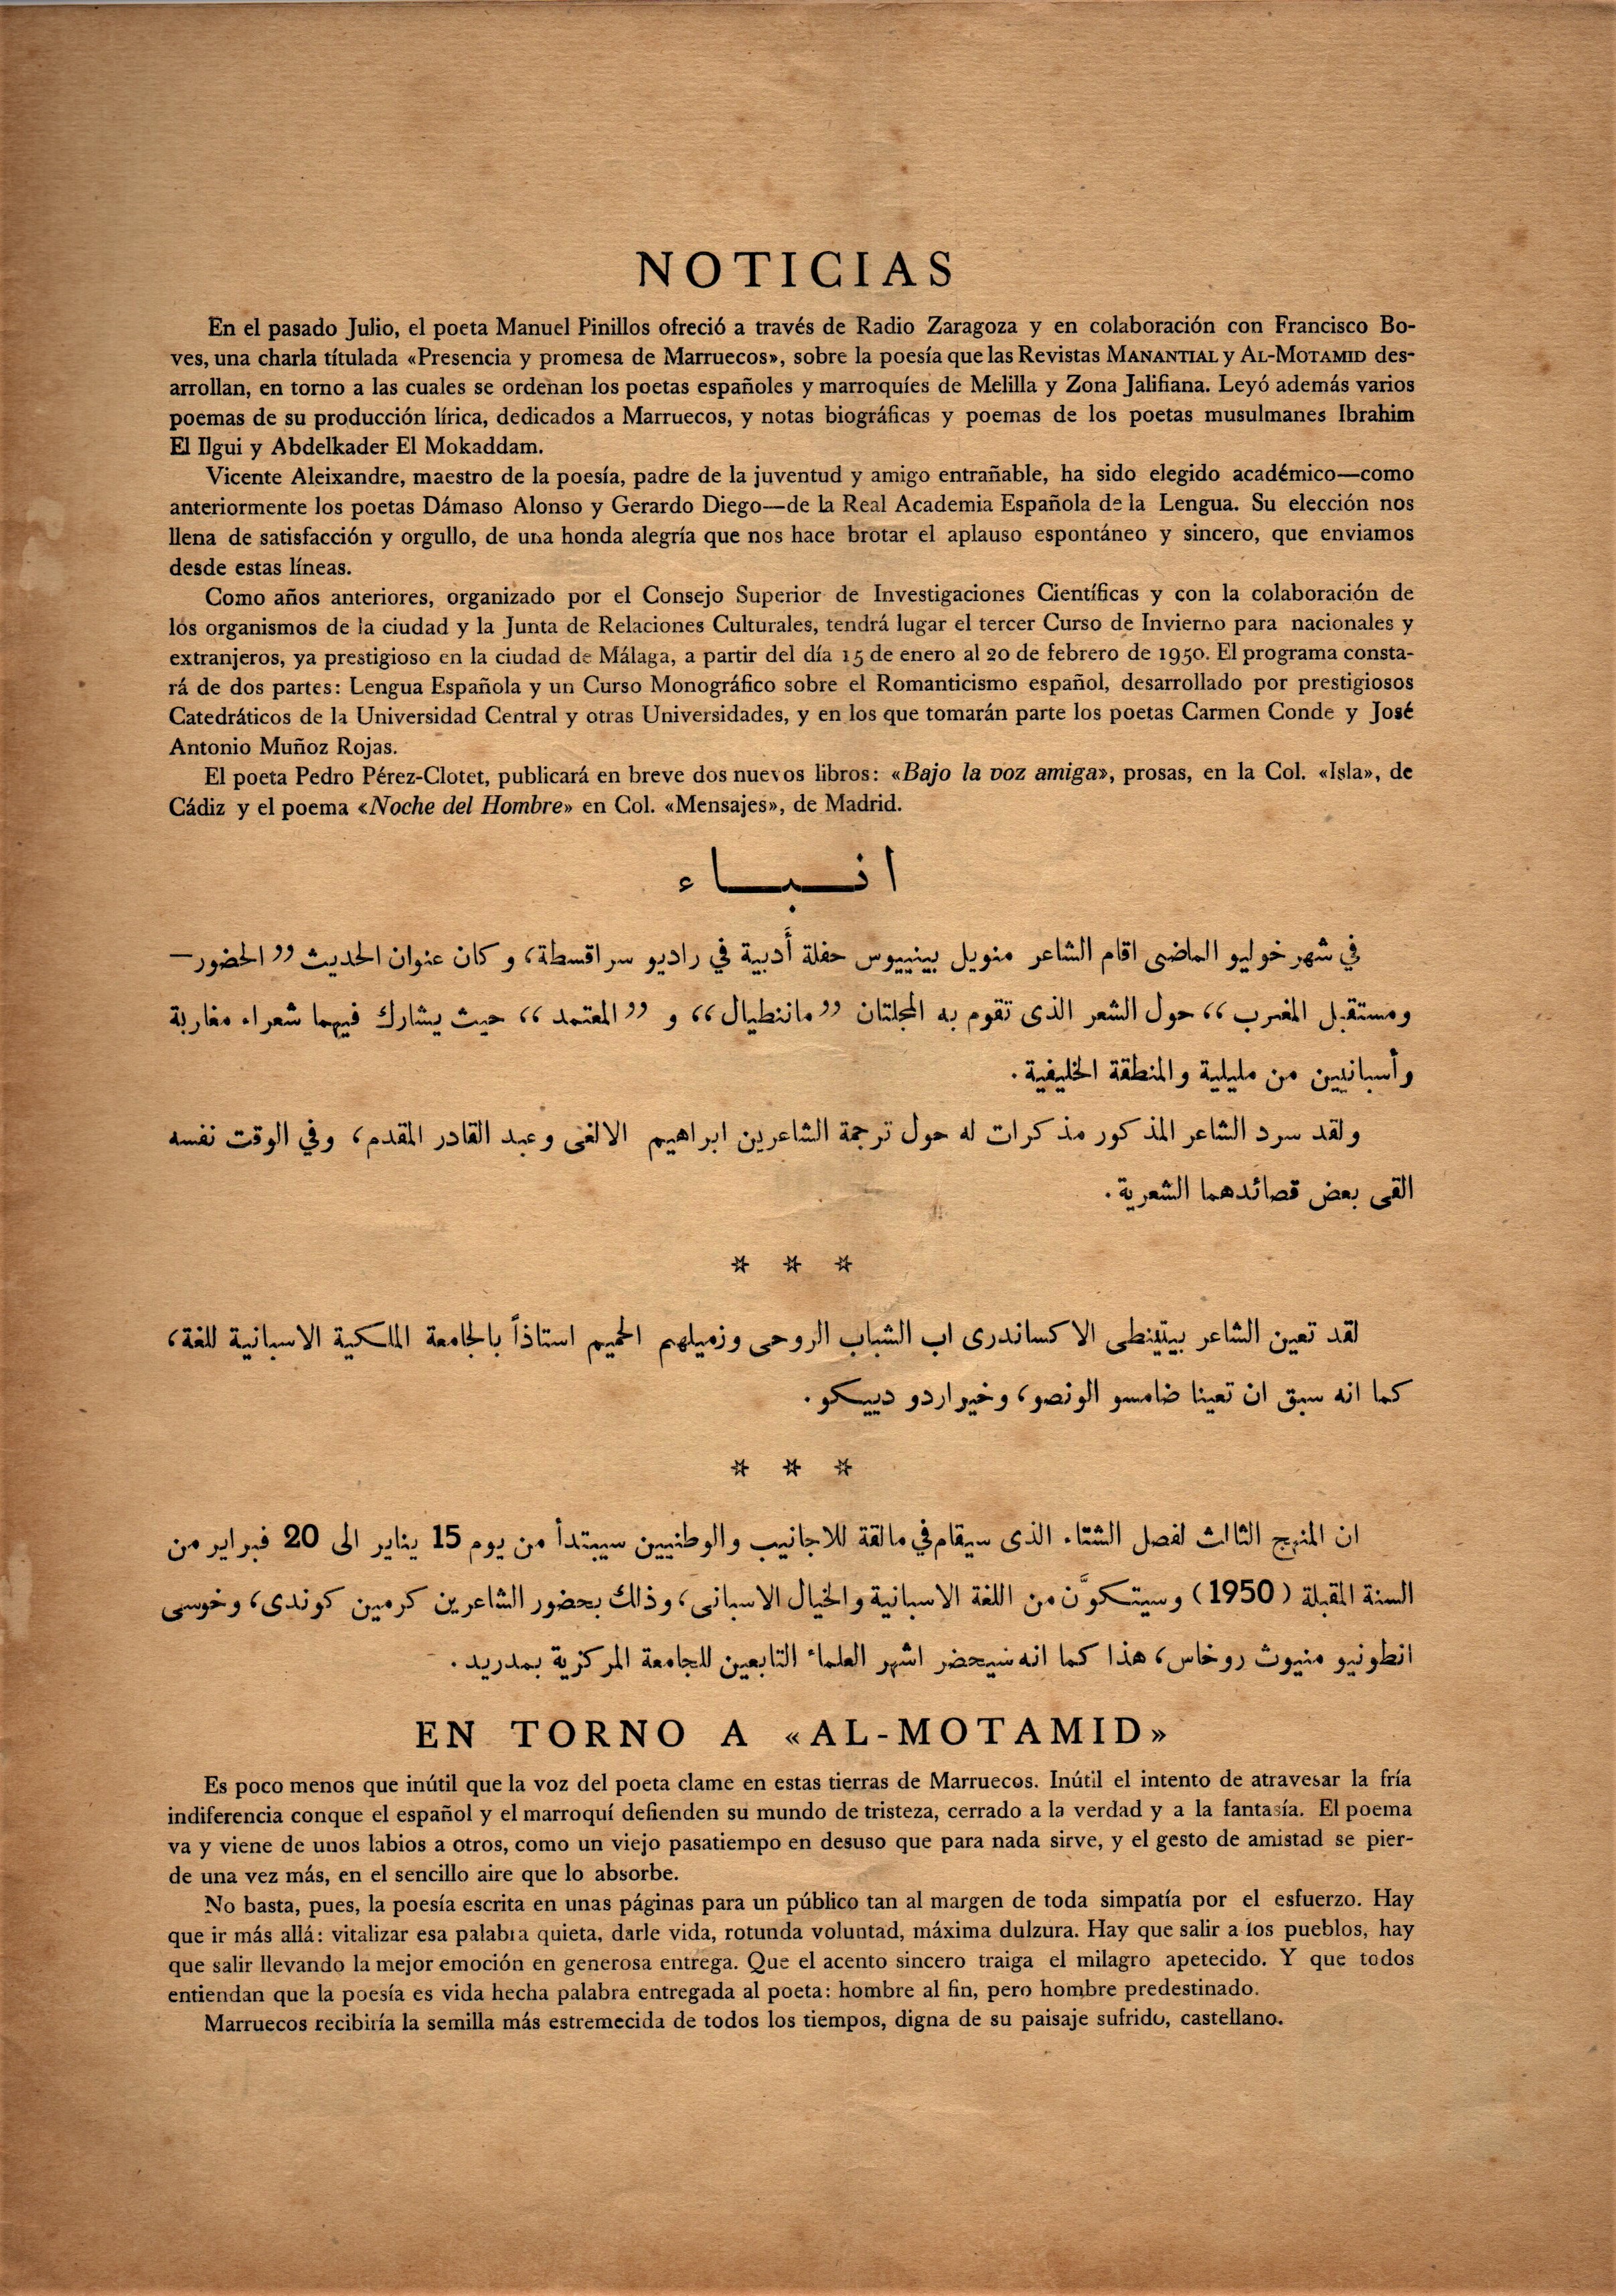 NOTICIAS
En el pasado Julio, el poeta Manuel Pinillos ofreció a través de Radio Zaragoza y en colaboración con Francisco Bo-
ves, una charla títulada «Presencia y promesa de Marruecos», sobre la poesía que las Revistas MANANTIAL y AL-MOTAMID des-
arrollan, en torno a las cuales se ordenan los poetas españoles y marroquíes de Melilla y Zona Jalifiana. Leyó además varios
poemas de su producción lírica, dedicados a Marruecos, y notas biográficas y poemas de los poetas musulmanes Ibrahim
El Ilgui y Abdelkader El Mokaddam.
Vicente Aleixandre, maestro de la poesía, padre de la juventud y amigo entrañable, ha sido elegido académico—como
anteriormente los poetas Dámaso Alonso y Gerardo Diego—de la Real Academia Española de la Lengua. Su elección nos
llena de satisfacción y orgullo, de una honda alegría que nos hace brotar el aplauso espontáneo y sincero, que enviamos
desde estas líneas.
Como años anteriores, organizado por el Consejo Superior de Investigaciones Científicas y con la colaboración de
los organismos de la ciudad y la Junta de Relaciones Culturales, tendrá lugar el tercer Curso de Invierno para nacionales y
extranjeros, ya prestigioso en la ciudad de Málaga, a partir del día 15 de enero al 20 de febrero de 1950. El programa consta-
rá de dos partes: Lengua Española y un Curso Monográfico sobre el Romanticismo español, desarrollado por prestigiosos
Catedráticos de la Universidad Central y otras Universidades, y en los que tomarán parte los poetas Carmen Conde y José
Antonio Muñoz Rojas.
El poeta Pedro Pérez-Clotet, publicará en breve dos nuevos libros: «Bajo la voz amiga», prosas, en la Col. «Isla», de
Cádiz y el poema «Noche del Hombre» en Col. «Mensajes», de Madrid.
انـبـاء
في شهر خوليو الماضى اقام الشاعر منويل بينييوس حفلة أدبية في راديو سراقسطة، وكان عنوان الحديث ”الحضور —
ومستقبل المغرب“ حول الشعر الذى تقوم به المجلتان ”ماننطيال“ و ”المعتمد“ حيث يشارك فيهما شعراء مغاربة
وأسبانيين من مليلية والمنطقة الخليفية.
ولقد سرد الشاعر المذكور مذكرات له حول ترجمة الشاعرين ابراهيم الالغى وعبد القادر المقدم، وفي الوقت نفسه
القى بعض قصائدهما الشعرية.
* * *
لقد تعين الشاعر بيثينطى الاكساندرى اب الشباب الروحى وزميلهم الحميم استاذاً بالجامعة الملكية الاسبانية للغة،
كما انه سبق ان تعينا ضامسو الونصو، وخيراردو دييكو.
* * *
ان المنهج الثالث لفصل الشتاء الذى سيقام في مالقة للاجانيب والوطنيين سيبتدأ من يوم 15 يناير الى 20 فبراير من
السنة المقبلة (1950) وسيتكوَّن من اللغة الاسبانية والخيال الاسبانى، وذلك بحضور الشاعرين كرمين كوندى، وخوسى
انطونيو منيوث روخاس، هذا كما انه سيحضر اشهر العلماء التابعين للجامعة المركزية بمدريد.
EN TORNO A «AL-MOTAMID»
Es poco menos que inútil que la voz del poeta clame en estas tierras de Marruecos. Inútil el intento de atravesar la fría
indiferencia conque el español y el marroquí defienden su mundo de tristeza, cerrado a la verdad y a la fantasía. El poema
va y viene de unos labios a otros, como un viejo pasatiempo en desuso que para nada sirve, y el gesto de amistad se pier-
de una vez más, en el sencillo aire que lo absorbe.
No basta, pues, la poesía escrita en unas páginas para un público tan al margen de toda simpatía por el esfuerzo. Hay
que ir más allá: vitalizar esa palabra quieta, darle vida, rotunda voluntad, máxima dulzura. Hay que salir a los pueblos, hay
que salir llevando la mejor emoción en generosa entrega. Que el acento sincero traiga el milagro apetecido. Y que todos
entiendan que la poesía es vida hecha palabra entregada al poeta: hombre al fin, pero hombre predestinado.
Marruecos recibiría la semilla más estremecida de todos los tiempos, digna de su paisaje sufrido, castellano.